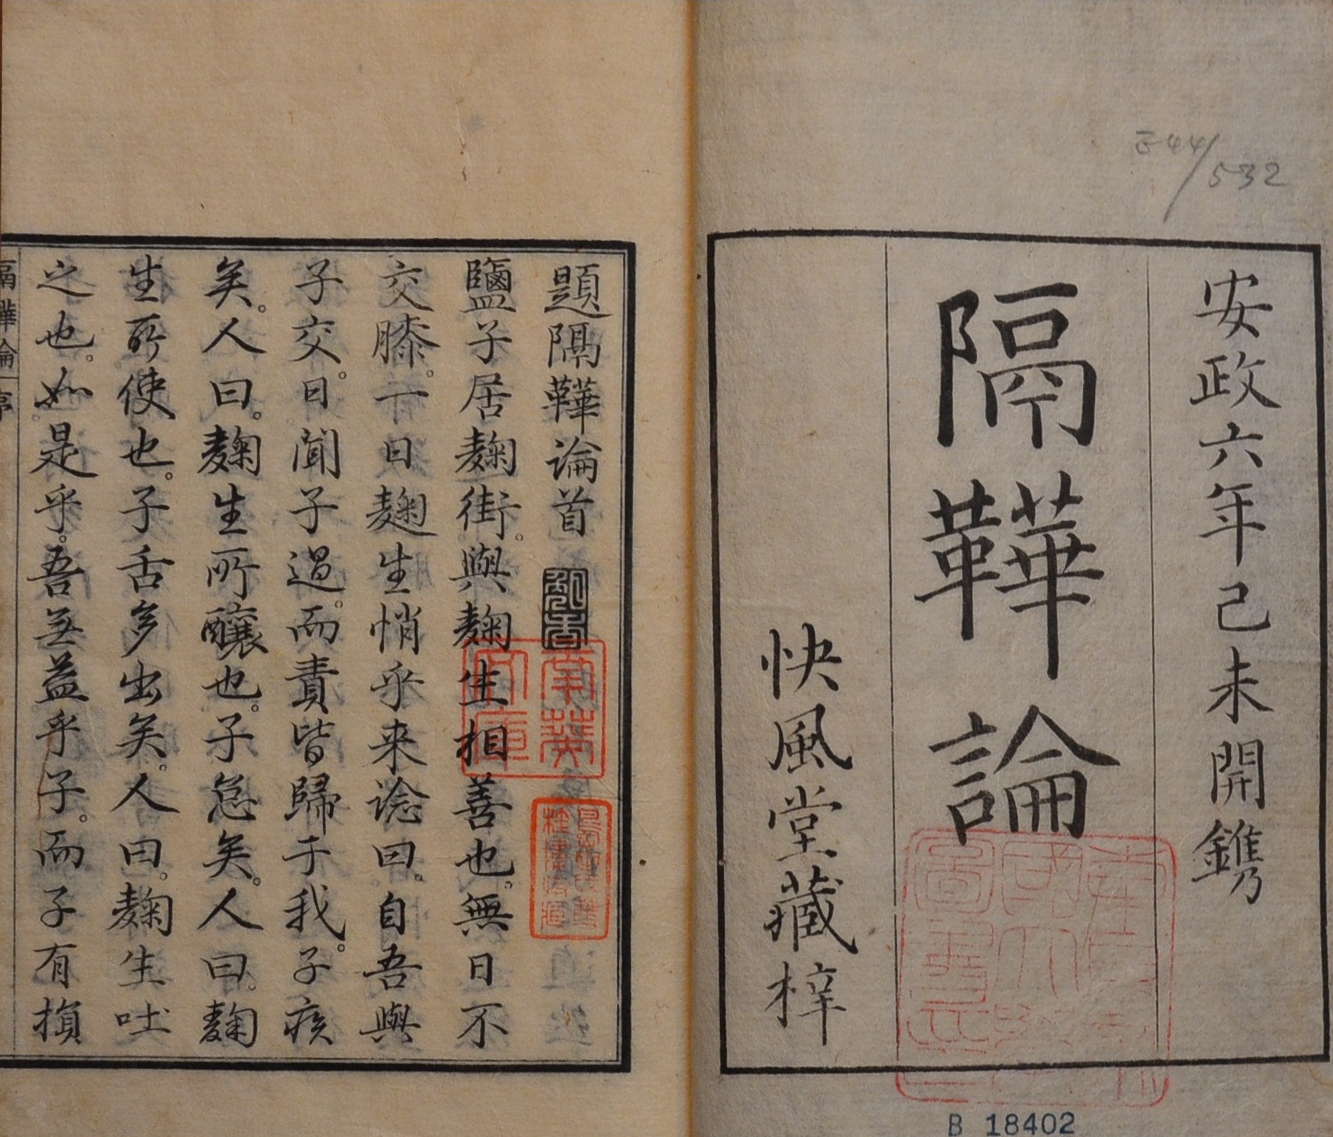 344/532
安政六年己未開鐫
隔鞾論
快風堂藏梓
B 18402
題隔鞾論首
鹽子居麹街。與麹生相善也。無日不
交膝。一日麹生悄乎来谂曰。自吾與
子交。日聞子過。而責皆歸于我。子疾
矣。人曰。麹生所釀也。子怠矣。人曰。麹
生所使也。子舌多出矣。人曰。麹生吐
之也。如是乎。吾無益乎子。而子有損
隔鞾論 序